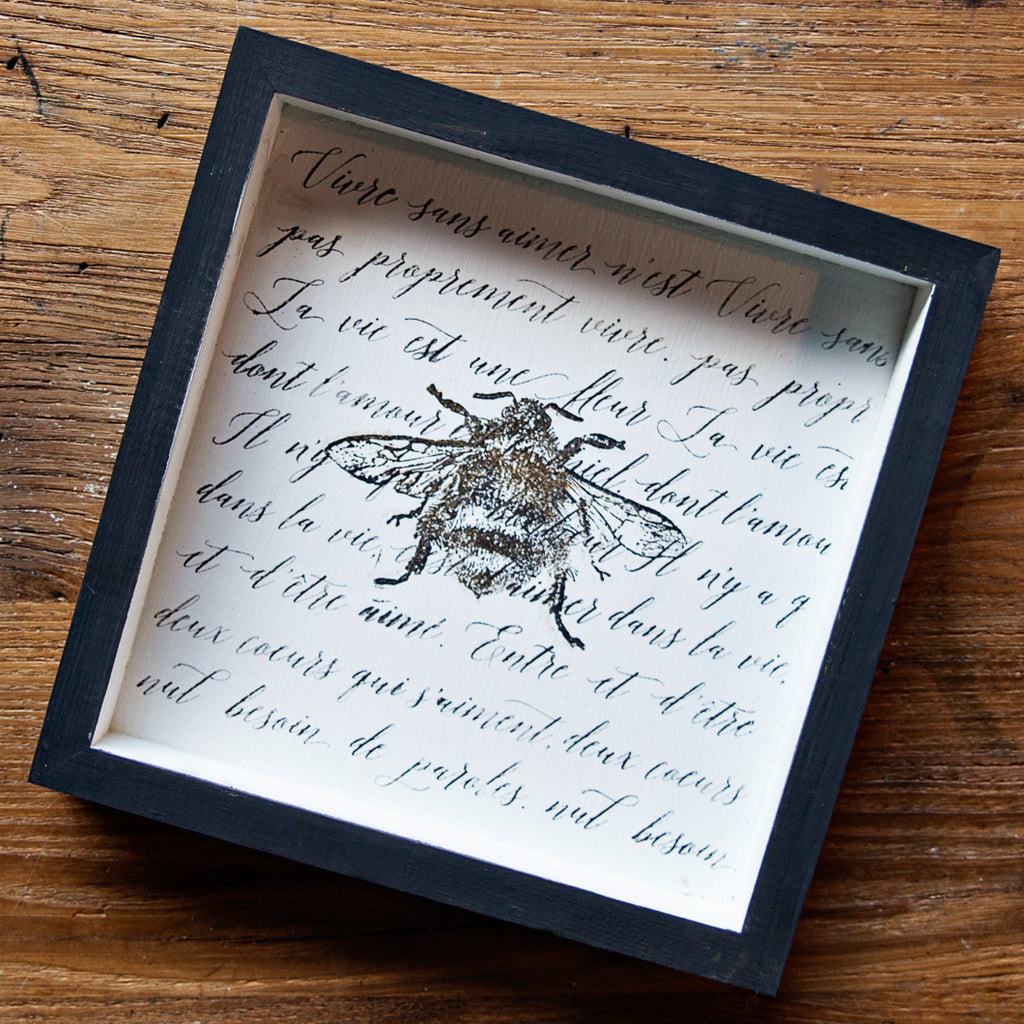 Vivre sans aimer n'est Vivre sans
pas proprement vivre. pas propr
La vie est une fleur La vie es
dont l'amour miel dont l'amou
Il n'y Il n'y a q
dans la vie, aimer dans la vie,
et d'être aimé. Entre et d'être
deux coeurs qui s'aiment, deux coeurs
nul besoin de paroles. nul besoin